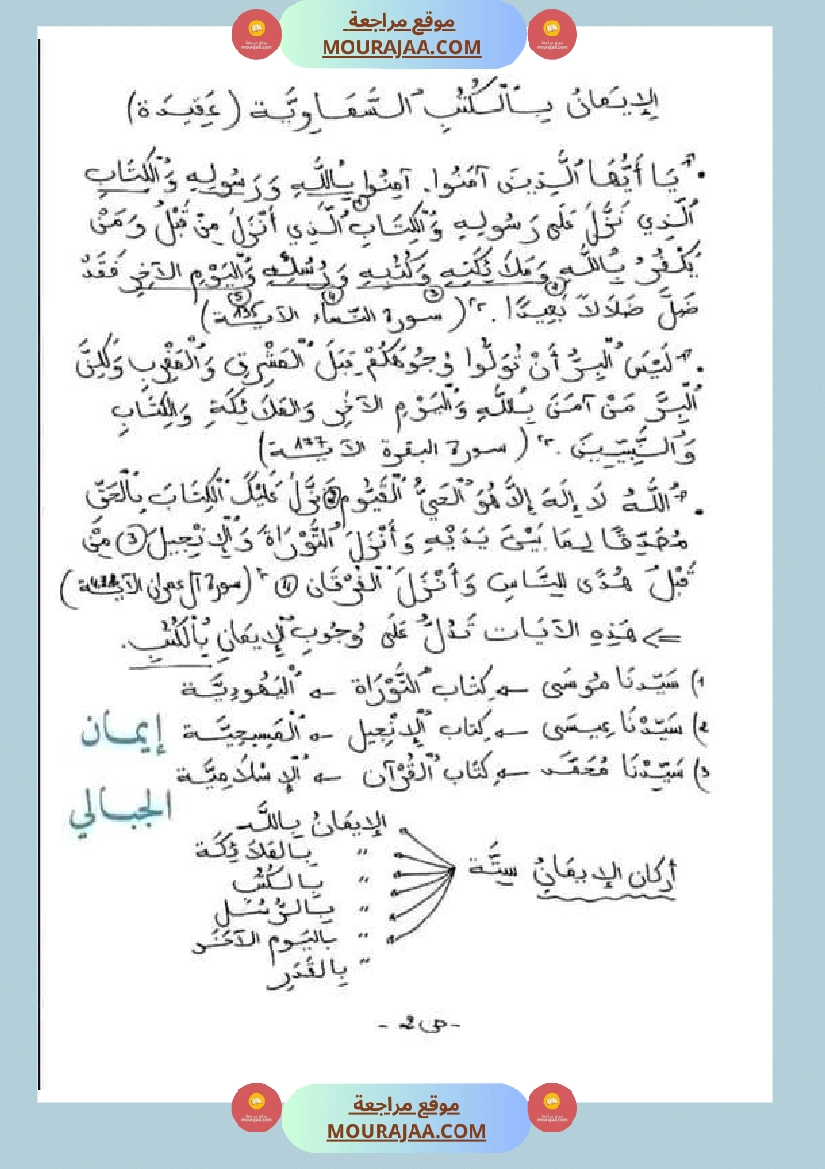 موقع مراجعة
MOURAJAA.COM
الإيمانُ بِالْكُتُبِ السَّمَاوِيَّة (عَقِيدَة)
• "يَا أَيُّهَا الَّذِينَ آمَنُوا. آمِنُوا بِاللَّهِ وَرَسُولِهِ وَالْكِتَابِ
الَّذِي نَزَّلَ عَلَى رَسُولِهِ وَالْكِتَابِ الَّذِي أَنْزَلَ مِنْ قَبْلُ وَمَنْ
يَكْفُرْ بِاللَّهِ وَمَلَائِكَتِهِ وَكُتُبِهِ وَرُسُلِهِ وَالْيَوْمِ الآخِرِ فَقَدْ
ضَلَّ ضَلَالاً بَعِيدًا." (سورة النّساء الآيــة)
• "لَيْسَ الْبِرَّ أَنْ تُوَلُّوا وُجُوهَكُمْ قِبَلَ الْمَشْرِقِ وَالْمَغْرِبِ وَلَكِنَّ
الْبِرَّ مَنْ آمَنَ بِاللَّهِ وَالْيَوْمِ الآخِرِ وَالمَلَائِكَةِ وَالكِتَابِ
وَالنَّبِيِّينَ." (سورة البقرة الآيــة 177)
• "اللَّهُ لَا إِلَهَ إِلاَّ هُوَ الْحَيُّ الْقَيُّوم 2 نَزَّلَ عَلَيْكَ الْكِتَابَ بِالْحَقِّ
مُصَدِّقًا لِمَا بَيْنَ يَدَيْهِ وَأَنْزَلَ التَّوْرَاةَ وَالإِنْجِيلَ 3 مِنْ
قَبْلُ هُدًى لِلنَّاسِ وَأَنْزَلَ الْفُرْقَان 4" (سورة آل عمران الآيــة)
=> هَذِهِ الآيَات تَدُلُّ عَلَى وُجُوبِ الإِيمَانِ بِالْكُتُبِ.
1) سَيِّدنَا مُوسَى → كِتَاب التَّوْرَاة → الْيَهُودِيَّة
2) سَيِّدْنَا عِيسَى → كِتَاب الإِنْجِيل → الْمَسِيحِيَّــة
3) سَيِّدْنَا مُحَمَّد → كِتَاب الْقُرْآن → الإِسْلَامِيَّة
إيمان
الجبالي
أركان الإيمَانُ سِتَّة
الإيمَانُ بِاللَّه
" بِالمَلَائِكَة
" بِالكُتُب
" بِالرُّسُل
" باليَوم الآخَر
" بِالقَدَرِ
- ص 2 -
موقع مراجعة
MOURAJAA.COM